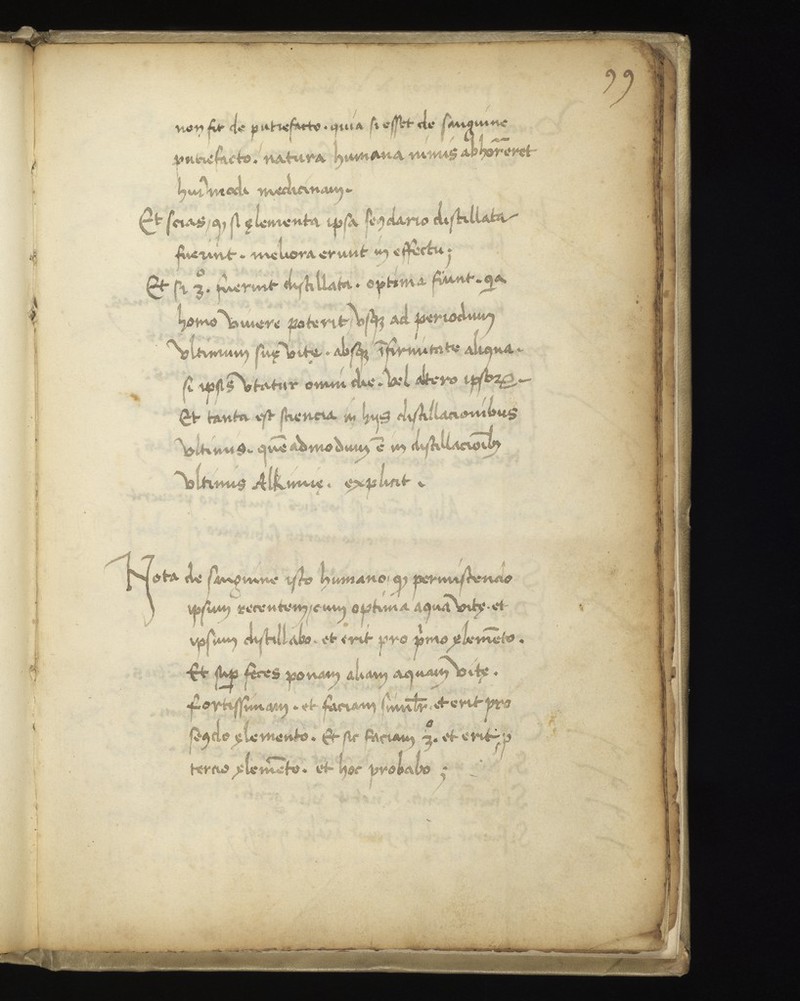 99
non fit de putrefacto. quia si esset de sanguine
putrefacto. natura humana nimis abhorreret
hui9modi medicinam.
Et scias, q̃ si ęlementa ipsa secũdario distillata
fuerint. meliora erunt in effectu;
Et si 3º. fuerint distillata. optima fiunt. qa
homo vivere poterit, vsq3 ad periodum
vltimum suę vitę. absq3 ĩfirmitate aliqua.
si ipsis vtatur omni die. vel altero ipsoꝝ.
Et tanta est sciencia in hijs distillacionibus
vltimis. quẽadmodum ẽ in distillaciõib9
vltimis Alkimię. explicit.
Nota de sanguine isto humano, q̃ permiscendo
ipsum recentem, cum optima aqua vitę. et
ipsum distillabo. et erit pro p̃mo ęlemẽto.
Et sup̱ feces ponam aliam aquam vitę.
fortissimam. et faciam simil̃r. et erit pro
secũdo ęlemento. Et sic faciam 3º. et erit, p
tercio ęlemẽto. et hoc probabo;